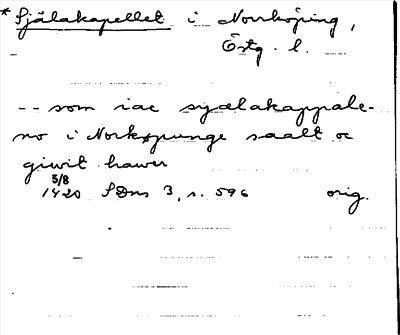 * Själakapellet i Norrköping,
Östg. l.
-- som iac syælakappale-
no i Norkøpunge saalt oc
giwit hawer
5/8
1420 SDns 3, s. 596 orig.